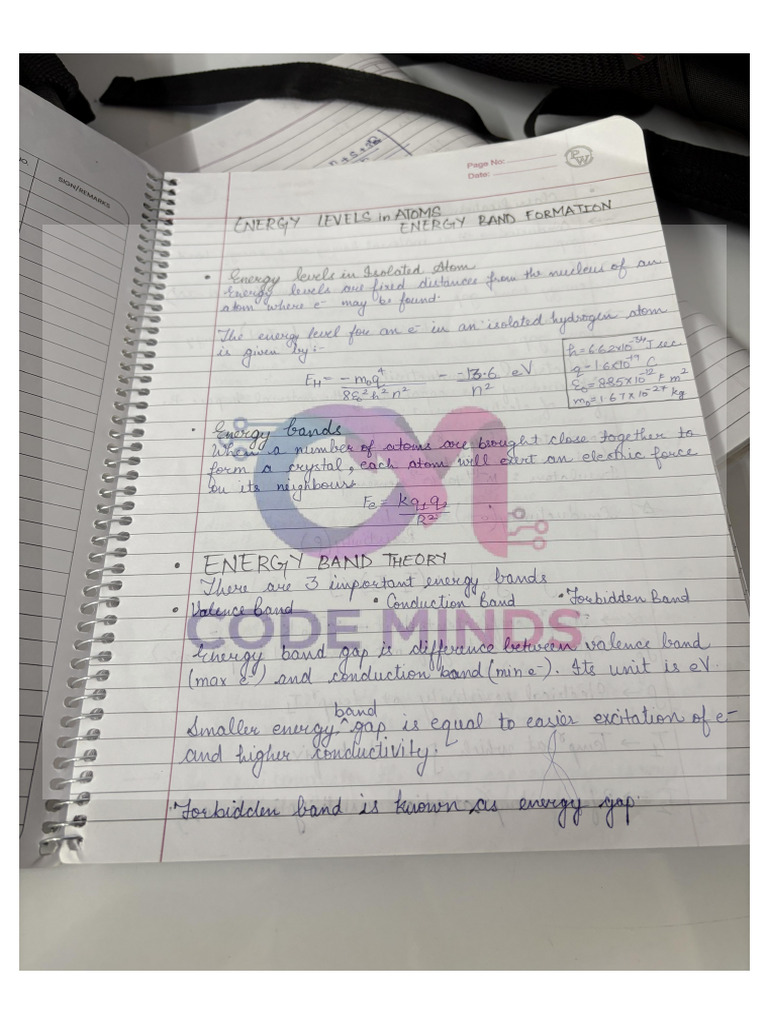 SIGN/REMARKS
Page No:
Date:
PW
ENERGY LEVELS in ATOMS
ENERGY BAND FORMATION
• Energy levels in Isolated Atom
Energy levels are fixed distances from the nucleus of an
atom where e⁻ may be found.
The energy level for an e⁻ in an isolated hydrogen atom
is given by:-
E_H = -m₀q⁴ / 8ε₀²h²n² - -13.6 / n² eV
h = 6.62x10⁻³⁴ J sec
q = 1.6x10⁻¹⁹ C
ε₀ = 8.85x10⁻¹² F m²
m₀ = 1.67x10⁻²⁷ kg
• Energy bands
When a number of atoms are brought close together to
form a crystal, each atom will exert an electric force
on its neighbours
Fe = kq₁q₂ / R²
• ENERGY BAND THEORY
There are 3 important energy bands
• Valence band • Conduction Band • Forbidden Band
CODE MINDS
Energy band gap is difference between valence band
(max e⁻) and conduction band (min e⁻). Its unit is eV.
Smaller energy band gap is equal to easier excitation of e⁻
and higher conductivity.
• Forbidden band is known as energy gap.